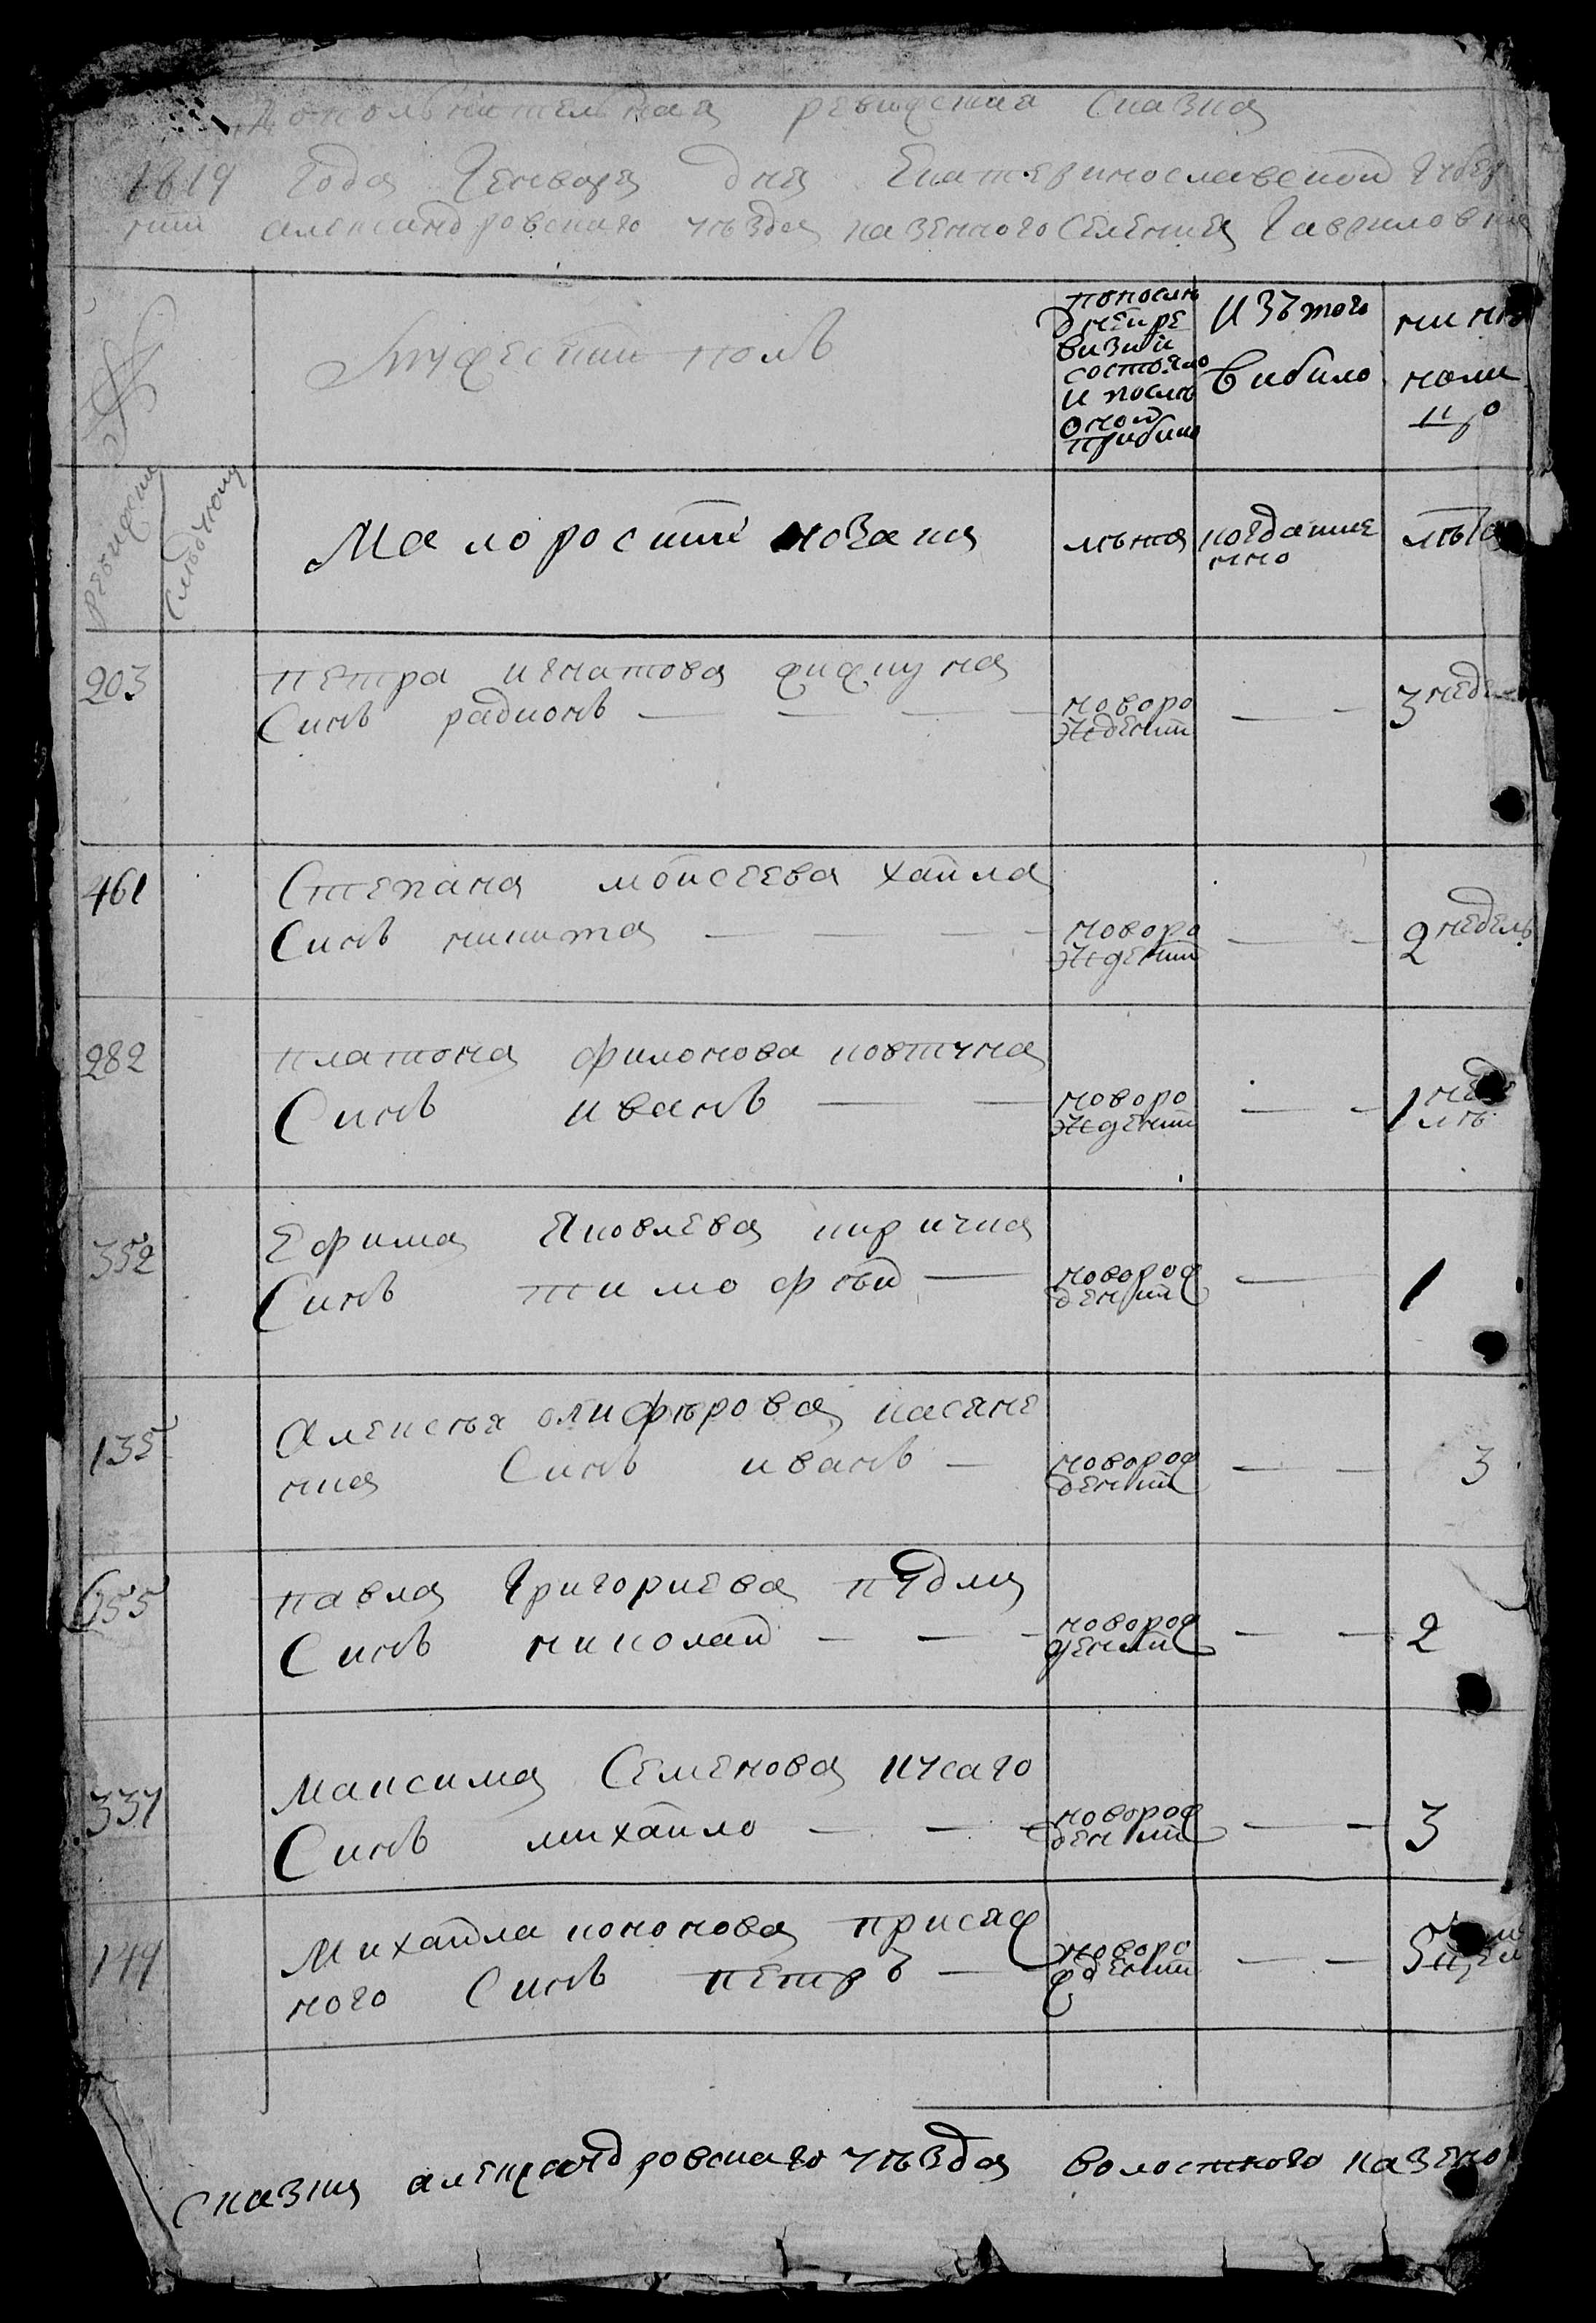 Дополнителная ревижская сказка
1819 Года Генваря дня Екатеринославской Губер
нии александровскаго уъзда казенного Селения Гавриловки
Мужеский полъ
попослѣ
дней ре
визии
состояло
и послѣ
оной
прибило
Изътого
вибило
нинѣ
нали
цо
ревижски
Следуюч
Малороссии козаки
лѣта
когда имя
нно
лѣта
203
петра игнатова
Синъ радионъ
новоро
ждений
3 недел
461
Степана моисеева хаила
Синъ никита
новоро
ждений
2 недель
282
платона филонова ковтуна
Синъ иванъ
новоро
ждений
1 неде
лѣ
352
Ефима Яковлева кирична
Синъ тимофѣй
новорож
дений
1
135
Алексѣя олифѣрова касяне
нка Синъ иванъ
новорож
дений
3
655
павла Григориева
Синъ николай
новорож
дений
2
337
Максима Семенова кусаго
Синъ михайло
новорож
дений
3
144
Михайла кононова присяж
ного Синъ петръ
новоро
ждений
5
Сказка александровскаго уъзда волостного казено